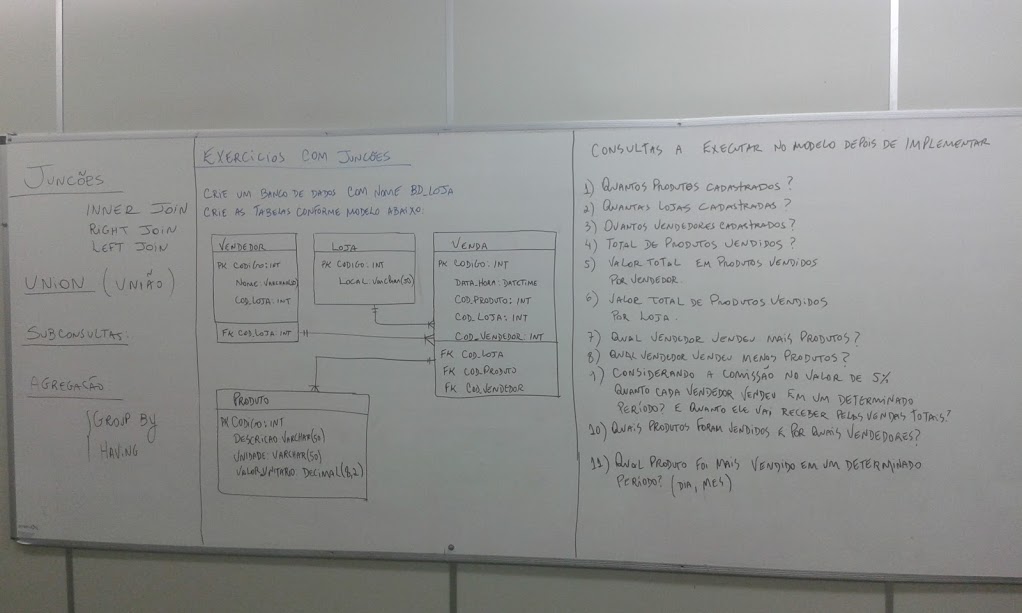 JUNCÕES
INNER JOIN
RIGHT JOIN
LEFT JOIN
UNION (UNIÃO)
SUBCONSULTAS.
AGREGAÇÃO
GROUP BY
HAVING
EXERCÍCIOS COM JUNCÕES
CRIE UM BANCO DE DADOS COM NOME BD_LOJA
CRIE AS TABELAS CONFORME MODELO ABAIXO:
VENDEDOR
PK CODIGO: INT
NOME: VARCHAR
COD_LOJA: INT
FK COD_LOJA: INT
LOJA
PK CODIGO: INT
LOCAL: VARCHAR(50)
VENDA
PK CODIGO: INT
DATA_HORA: DATETIME
COD_PRODUTO: INT
COD_LOJA: INT
COD_VENDEDOR: INT
FK COD_LOJA
FK COD_PRODUTO
FK COD_VENDEDOR
PRODUTO
PK CODIGO: INT
DESCRICAO VARCHAR(50)
UNIDADE: VARCHAR(50)
VALOR_UNITARIO: DECIMAL(8,2)
CONSULTAS A EXECUTAR NO MODELO DEPOIS DE IMPLEMENTAR
1) QUANTOS PRODUTOS CADASTRADOS?
2) QUANTAS LOJAS CADASTRADAS?
3) QUANTOS VENDEDORES CADASTRADOS?
4) TOTAL DE PRODUTOS VENDIDOS?
5) VALOR TOTAL EM PRODUTOS VENDIDOS
POR VENDEDOR.
6) VALOR TOTAL DE PRODUTOS VENDIDOS
POR LOJA.
7) QUAL VENDEDOR VENDEU MAIS PRODUTOS?
8) QUAL VENDEDOR VENDEU MENOS PRODUTOS?
9) CONSIDERANDO A COMISSÃO NO VALOR DE 5%
QUANTO CADA VENDEDOR VENDEU EM UM DETERMINADO
PERÍODO? E QUANTO ELE VAI RECEBER PELAS VENDAS TOTAIS?
10) QUAIS PRODUTOS FORAM VENDIDOS E POR QUAIS VENDEDORES?
11) QUAL PRODUTO FOI MAIS VENDIDO EM UM DETERMINADO
PERÍODO? (DIA, MES)